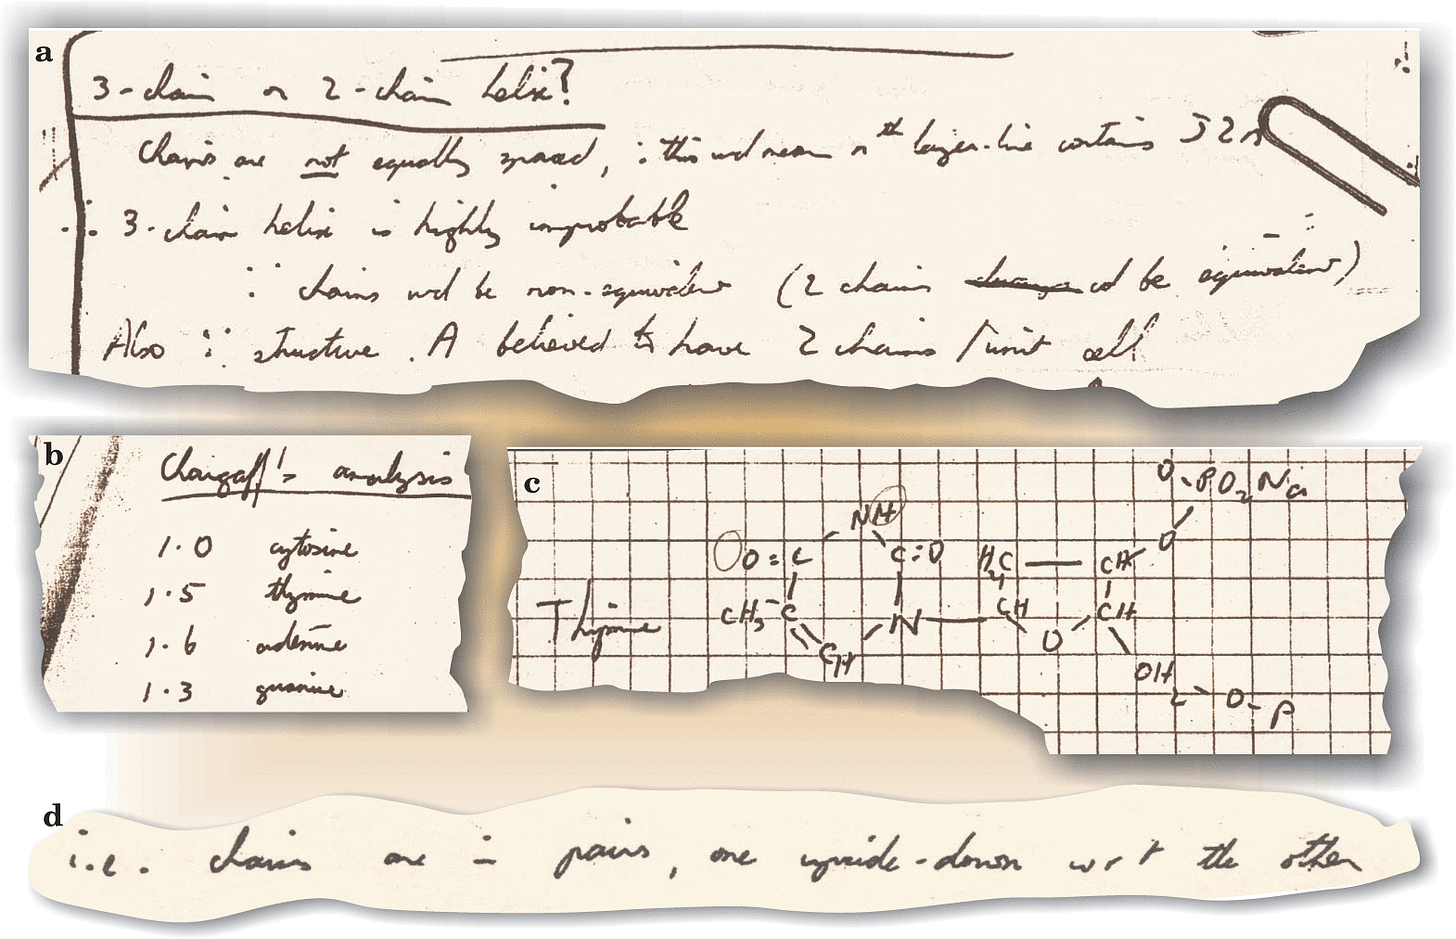 a
3-chain or 2-chain helix?
Chains are not equally spaced, ∵ this wd mean nth layer-line contains J2n
∴ 3-chain helix is highly improbable
∵ chains wd be non-equivalent (2 chains cd be equivalent)
Also ∵ structure A believed to have 2 chains / unit cell
b
Chargaff's analysis
1.0 cytosine
1.5 thymine
1.6 adenine
1.3 guanine
c
O-PO2Na
NH O
O=C C=O H2C CH
Thymine CH3-C N CH CH
CH O
OH
2-O-P
d
i.e. chains are in pairs, one upside-down wrt the other